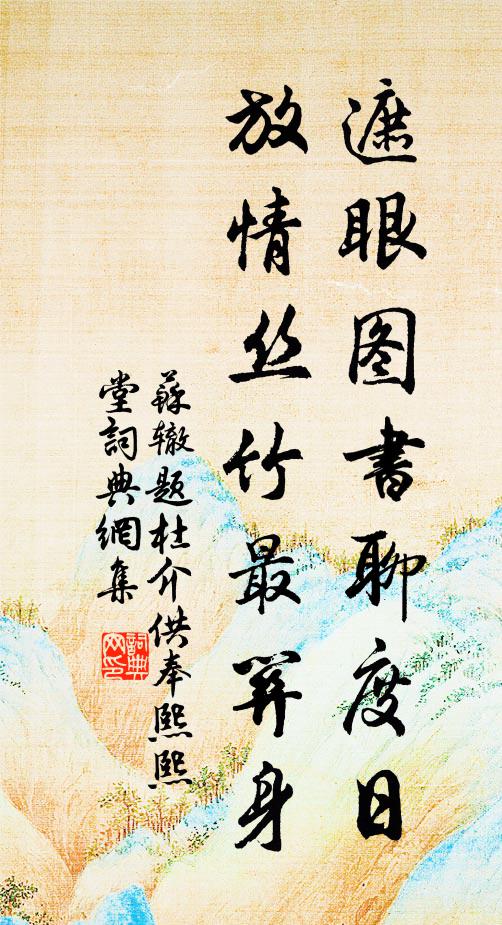 遮眼图书聊度日
放情丝竹最关身
蘇辙题杜介供奉熙熙
堂詞典網集
詞典网印